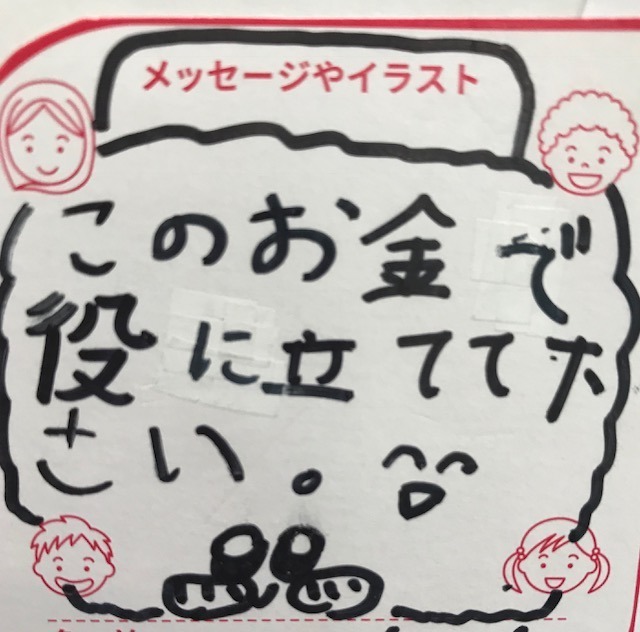 メッセージやイラスト
このお金で
役に立てて下
さい。